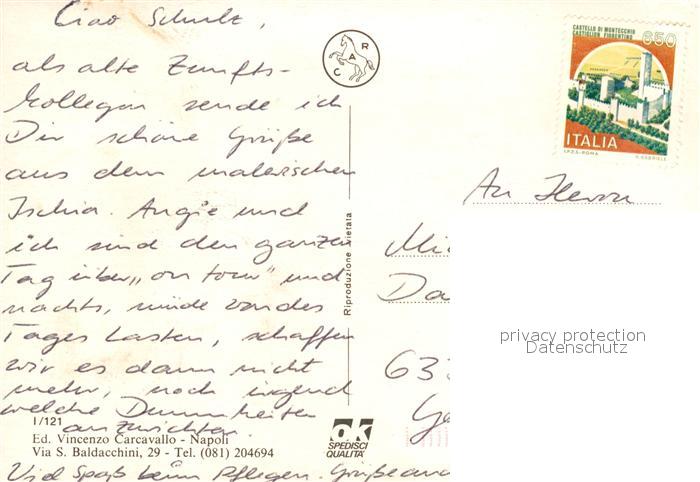 Ciao Schulz,
als alte Zunfts-
kollegen sende ich
Dir schöne Grüße
aus dem malerischen
Ischia. Angie und
ich sind den ganzen
Tag über „on tour" und
nachts, müde von des
Tages Lasten, schaffen
wir es dann nicht
mehr, noch irgend
welche Dummheiten
anzurichten.
Viel Spaß beim Pflegen. Grüße
I/121
Ed. Vincenzo Carcavallo - Napoli
Via S. Baldacchini, 29 - Tel. (081) 204694
CRAC
Riproduzione vietata
OK
SPEDISCI
QUALITÀ
CASTELLO DI MONTECCHIO
CASTIGLION FIORENTINO
650
ITALIA
I.P.Z.S. - ROMA
An Herrn
Mi
Da
633
privacy protection
Datenschutz